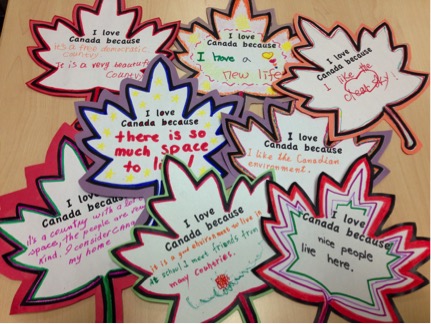 I love
Canada because
It's a free democratic
Country
It is a very beautiful
Country
I love
Canada because
I have a
new life
I love
Canada because
I like the
I love
Canada because
there is so
much space
to
I love
Canada because
I like the Canadian
environment.
I love
Canada because
it's a country with a lot of
space, the people are very
kind. I consider Canada
my home
I love
Canada because
it is a good environment to live in
at school I meet friends from
many countries.
I love
Canada because
nice people
live here.